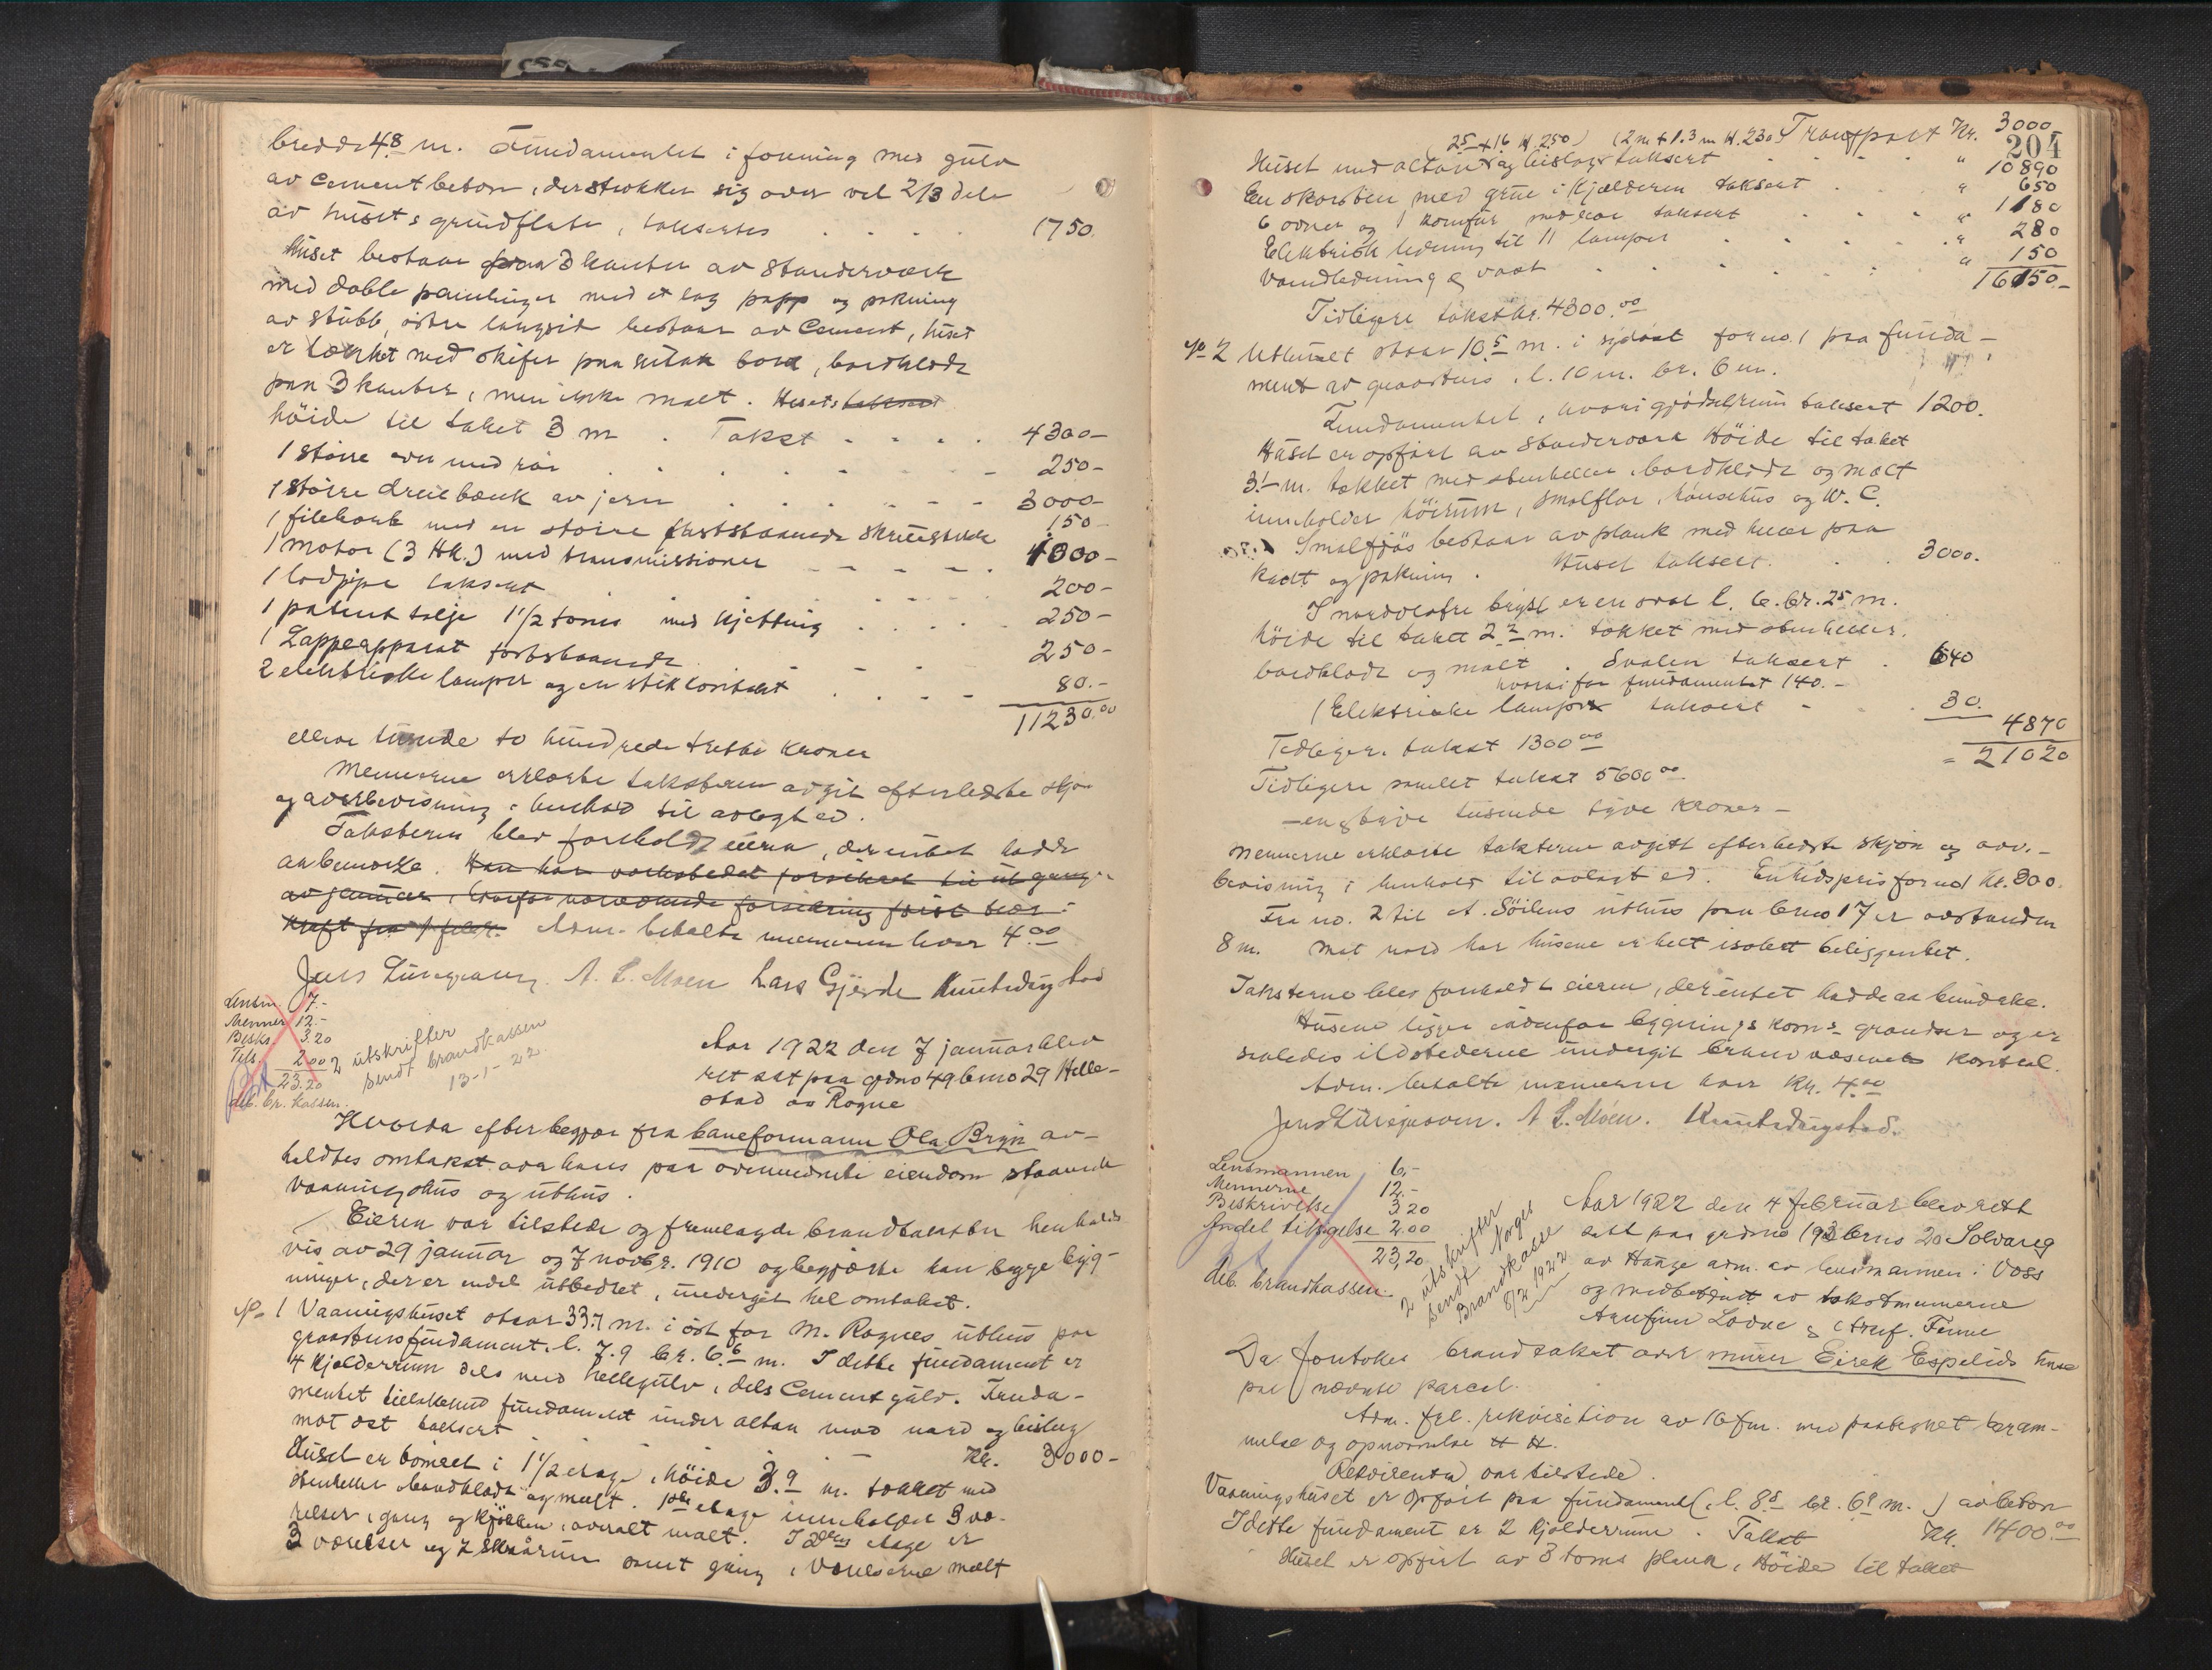 bredde 4.8 m. Fundamentet i forening med gulv
av cementbeton, der strækker sig over vel 2/3 dele
av husets grundflate, takseres . . . . 1750.
Huset bestaar paa 3 kanter av standerværk
med doble panelinger med et lag papp og pakning
av stubb, østre langside bestaar av Cement, huset
er tækket med skifer paa sutak bord, bordklædt
paa 3 kanter, men ikke malt. Husets taksert
höide til taket 3 m . Takst . . . . 4300-
1 större ovn med rör . . . . . . 250-
1 större dreiebænk av jern . . . . 3000-
1 filebænk med en större faststaaende skruestikke 150-
1 motor (3 Hk.) med transmissioner . . . . 1000-
1 lodpipe taksert . . . . . 200-
1 patent talje 1 1/2 tons med kjetting . . . . 250-
1 Lappeapparat fastsstaaende . . . . 250-
2 elektriske lamper og en stikkontakt . . . . 80.-
11230.00
elleve tusinde to hundrede tretti kroner
Mennerne erklærte taksterne avgit efter bedste skjøn
og overbevisning i henhold til avlagt ed.
Taksterne blev foreholdt eieren, der intet hadde
at bemerke. Han har verkstedet forsikret til utgang
av januar, hvorfor nærværende forsikring først træder i
kraft fra 1 febr. Adm. betalte mennerne hver 4.00
Jens Lirhusen A. L. Moen Lars Gjerde Knut Ringstad
Lensm. 7.-
Menner 12.-
Beskr. 3.20
Tils. 2.00
23.20
deb. br. kassen.
2 utskrifter
sendt brandkassen
13-1-22.
Aar 1922 den 7 januar blev
ret sat paa gdno 49 brno 29 Helle-
stad av Rogne
Hvorda efter begjær fra baneformann Ola Bryn av-
holdtes omtakst over hans paa ovennævnte eiendom staaende
vaaningshus og uthus.
Eieren var tilstede og fremlagde brandtakster henholds
vis av 29 januar og 7 novbr. 1910 og begjærte han begge byg-
ninger, der er endel utbedret, undergit hel omtakst.
No 1 Vaaningshuset staar 33.7 m. i öst for M. Rognes uthus paa
graastensfundament. l. 7.9 br. 6.6 m. I dette fundament er
4 kjælderrum dels med hellegulv, dels Cementgulv. Funda-
mentet tillikemed fundamentet under altan mod nord og bislag
mot öst taksert . . . Kr. 3000-
Huset er bömret i 1 1/2 etage, höide 3.9 m. tækket med
stenheller bordklædt og malt. 1ste etage inneholder 3 væ-
relser, gang og kjökken, overalt malt. I 2den etage er
3 værelser og 2 skraarum samt gang, værelserne malt
204
(2.5 + 1.6 H. 2.50) (2 m + 1.3 m H. 2.30) Transport Kr. 3000
Huset med altan og bislag taksert . . . . " 10890
En skorsten med grue i kjælderen taksert . . " 650
6 ovner og 1 komfur med rör taksert . . . " 1180
Elektrisk ledning til 11 lamper . . . . . " 280
Vandledning og vask . . . . . . " 150
16150.-
Tidligere takst kr. 4300.00
No 2 Uthuset staar 10.5 m. i sydöst for no. 1 paa funda-
ment av graastens. l. 10 m. br. 6 m.
Fundamentet, hvori gjödselrum taksert 1200.
Huset er opfört av standerværk Höide til taket
3.1 m. tækket med stenheller, bordklædt og malt
inneholder höirum, smalflor, hönsehus og W. C.
Smalfjös bestaar av plank med huer paa
kant og pakning . Huset taksert . . 3000.
I nordvestre bryst er en sval l. 6. br. 2.5 m.
höide til taket 2.2 m. tækket med stenheller.
bordklædt og malt . Svalen taksert . 640
hvorav for fundamentet 140.-
1 Elektriske lampe taksert . . 30.
4870
Tidligere takst 1300.00 = 21020
Tidligere samlet takst 5600.00
- en og tyve tusende tyve kroner -
Mennerne erklærte taksterne avgitt efter bedste skjön og over-
bevisning i henhold til avlagt ed. Enhedspris for no 1 kr. 300.
Fra no. 2 til A. Söilens uthus paa brno 17 er avstanden
8 m. Mot nord har husene en helt isolert beliggenhet.
Taksterne blev foreholdt eieren, der intet hadde at bemerke.
Husene ligger indenfor bygnings kom. grændser og er
saaledes ildstederne undergit brandvæsenets kontrol.
Adm. betalte mennerne hver kr. 4.00
A. L. Moen. Knut Ringstad.
Lensmannen 6.-
Mennerne 12.-
Beskrivelse 3.20
Andel tilsigelse 2.00
23,20
deb. brandkassen
2 utskrifter
sendt Norges
Brandkasse
8/2 1922
Aar 1922 den 4 februar blev rett
satt paa grdno 193 brno 20 Solvang
av Hauge adm. av lensmannen i Voss
og medbetjent av takstmennerne
Arnfinn Lödve og Arnf. Finne
Da foretokes brandtakst over murer Eirek Espelids huse
paa nævnte parcel.
Adm. frl. rekvisition av 16 f.m. med paategnet beram-
melse og opnævnelse
Rekvirenten var tilstede .
Vaaningshuset er opfört paa fundament (l. 8.5 br. 6.9 m.) av beton
I dette fundament er 2 kjælderrum . Takst Kr. 1400.00
Huset er opfört av 3 toms plank, Höide til taket